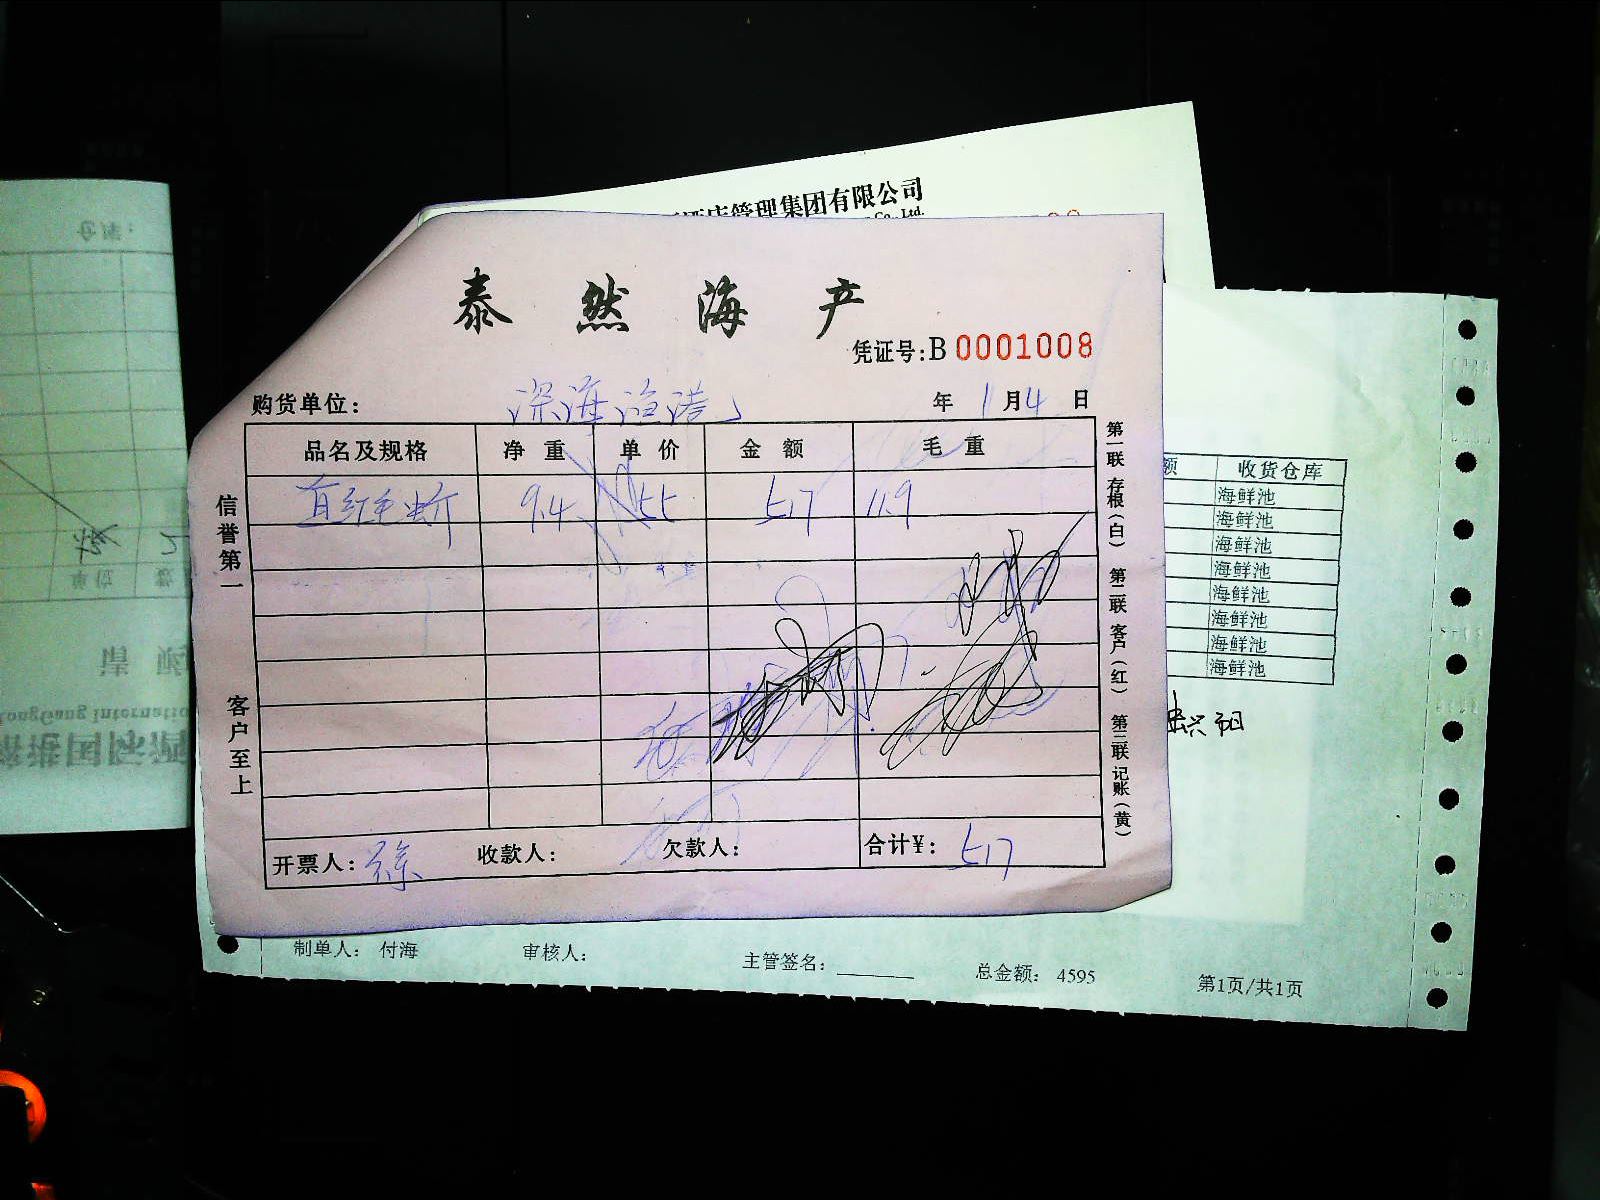 管理集团有限公司
Co., Ltd.
泰然海产
凭证号:B 0001008
购货单位: 深海渔港
年 1月4日
品名及规格 净重 单价 金额 毛重
红毛 9.4 55 517 11.9
信誉第一
客户至上
第一联 存根(白) 第二联 客户(红) 第三联 记账(黄)
开票人: 徐 收款人: 欠款人: 合计¥: 517
额 收货仓库
海鲜池
海鲜池
海鲜池
海鲜池
海鲜池
海鲜池
海鲜池
海鲜池
制单人: 付海 审核人: 主管签名: 总金额: 4595 第1页/共1页
仓库: